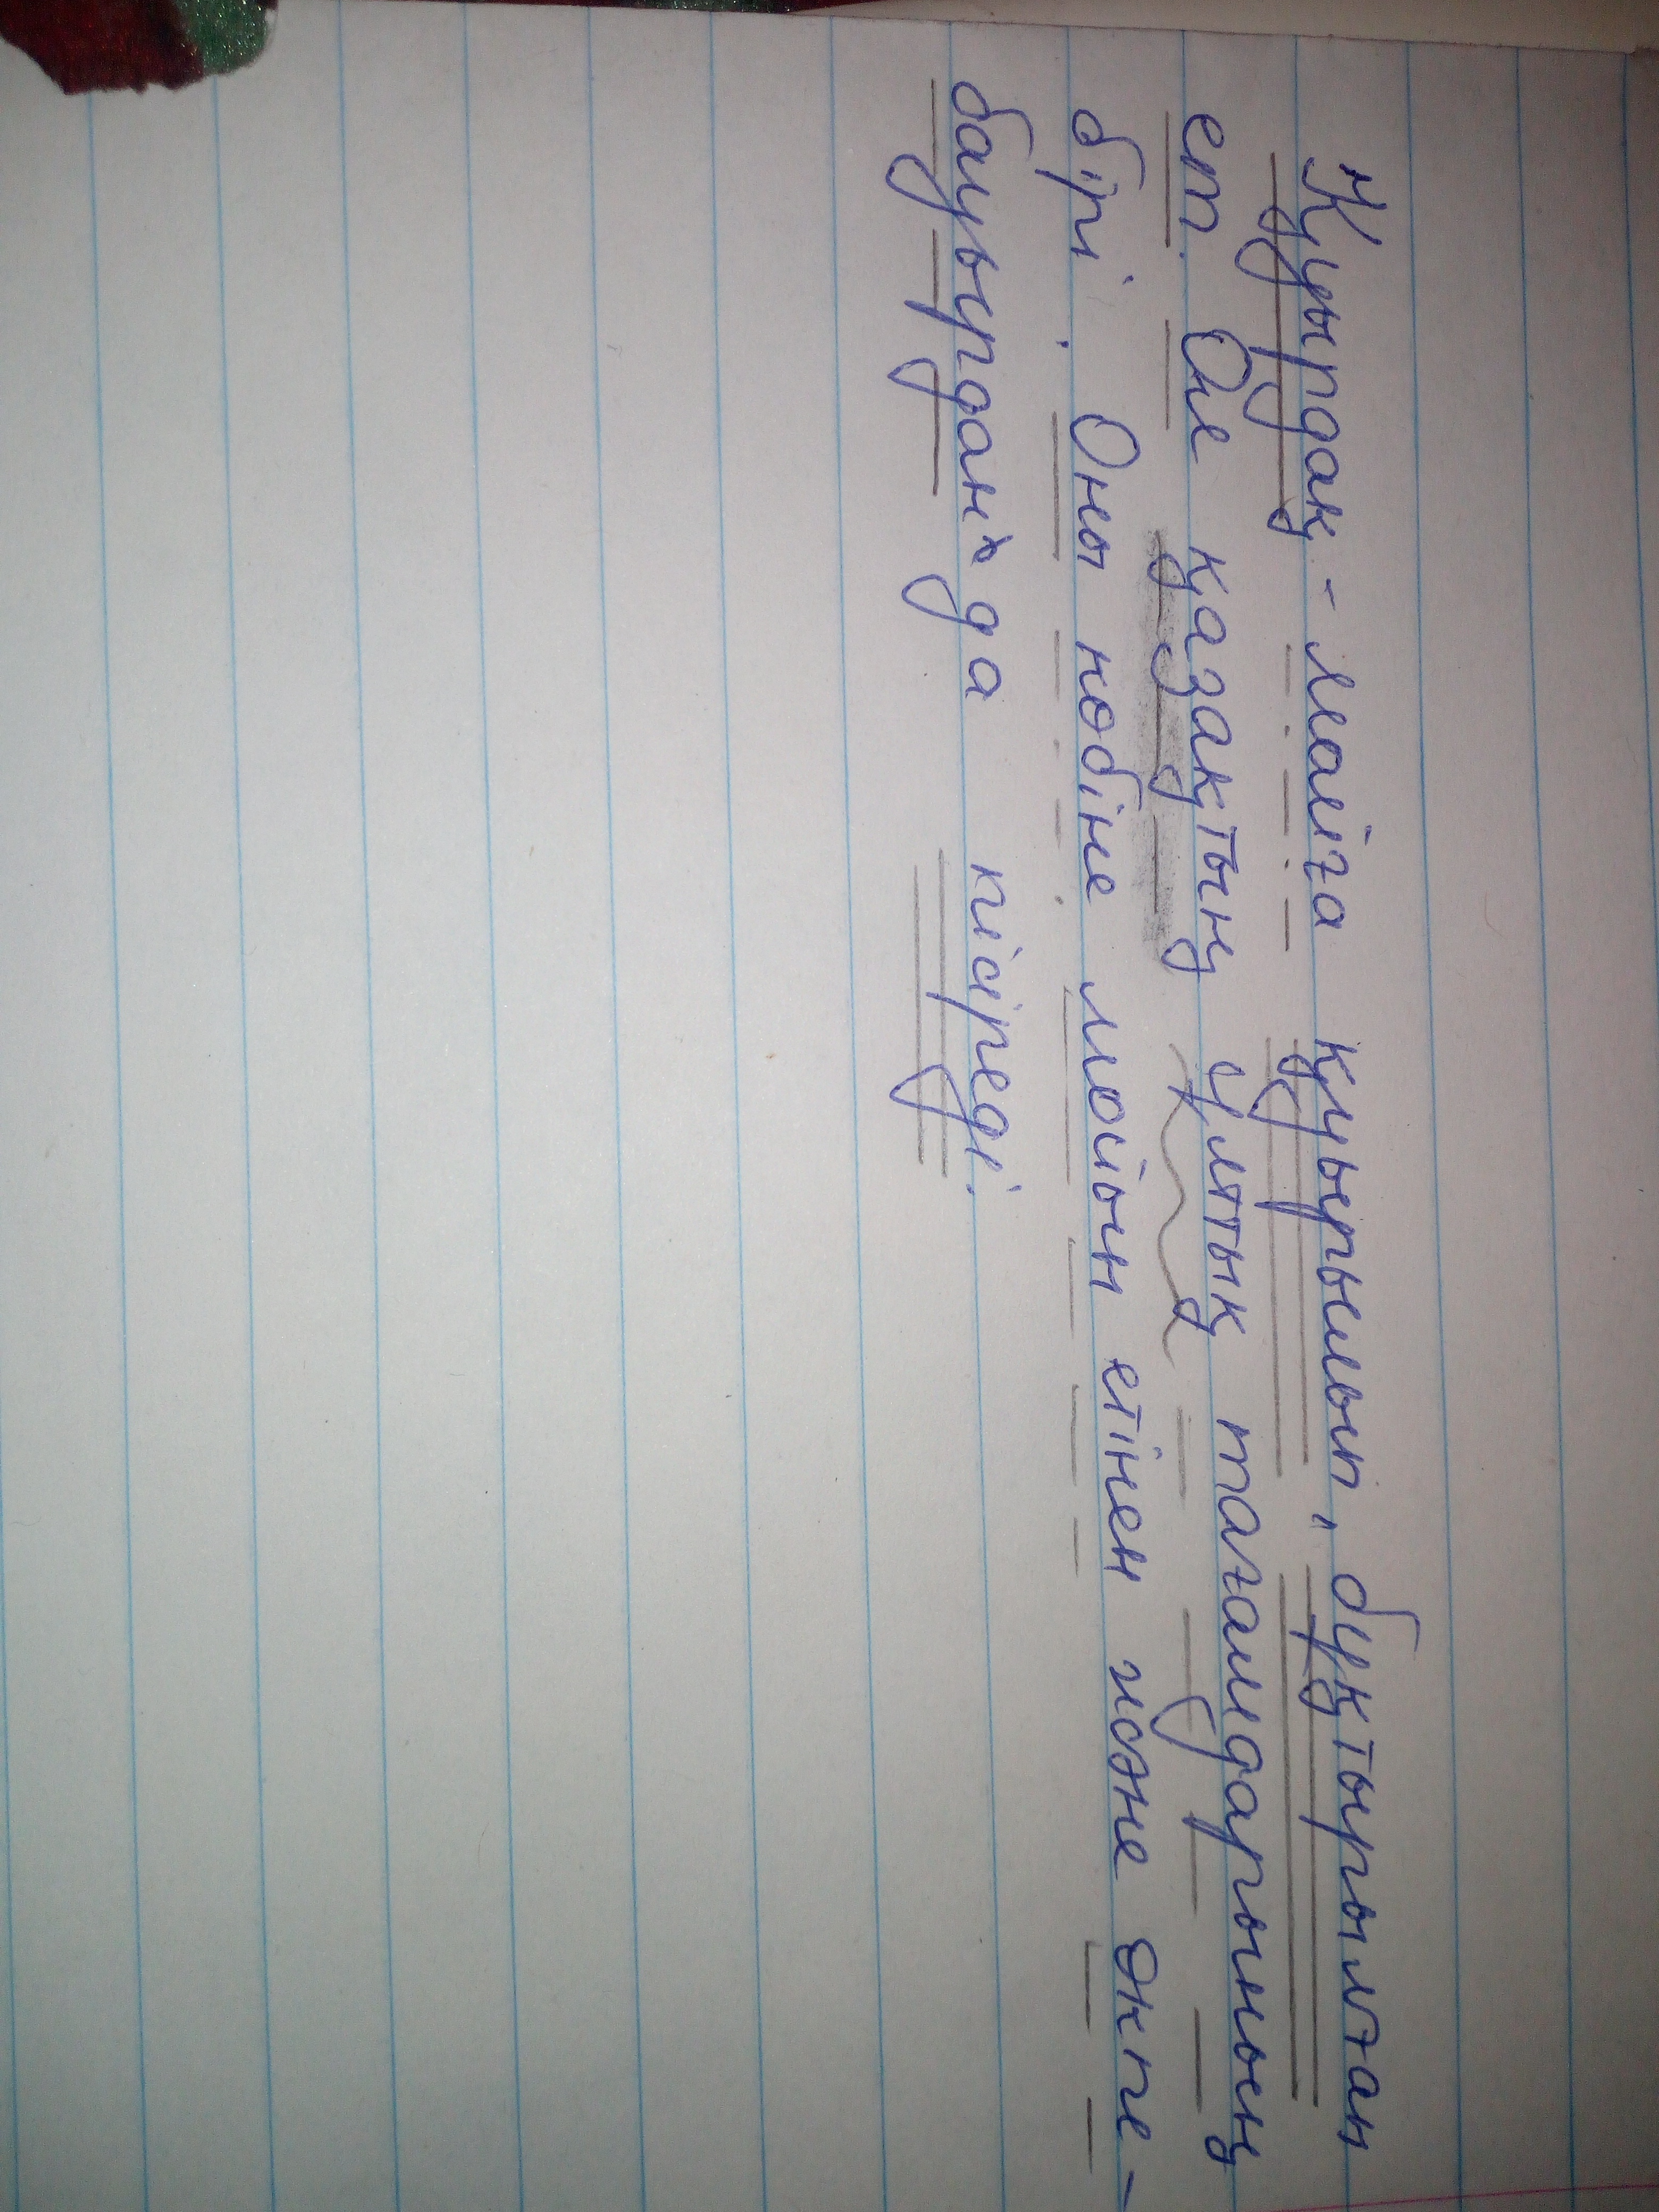 Қуырдақ - майға қуырылып, бұқтырылған
ет. Ол қазақтың ұлттық тағамдарының
бірі. Оны көбіне мойын етінен және өкпе-
бауырдан да пісіреді.